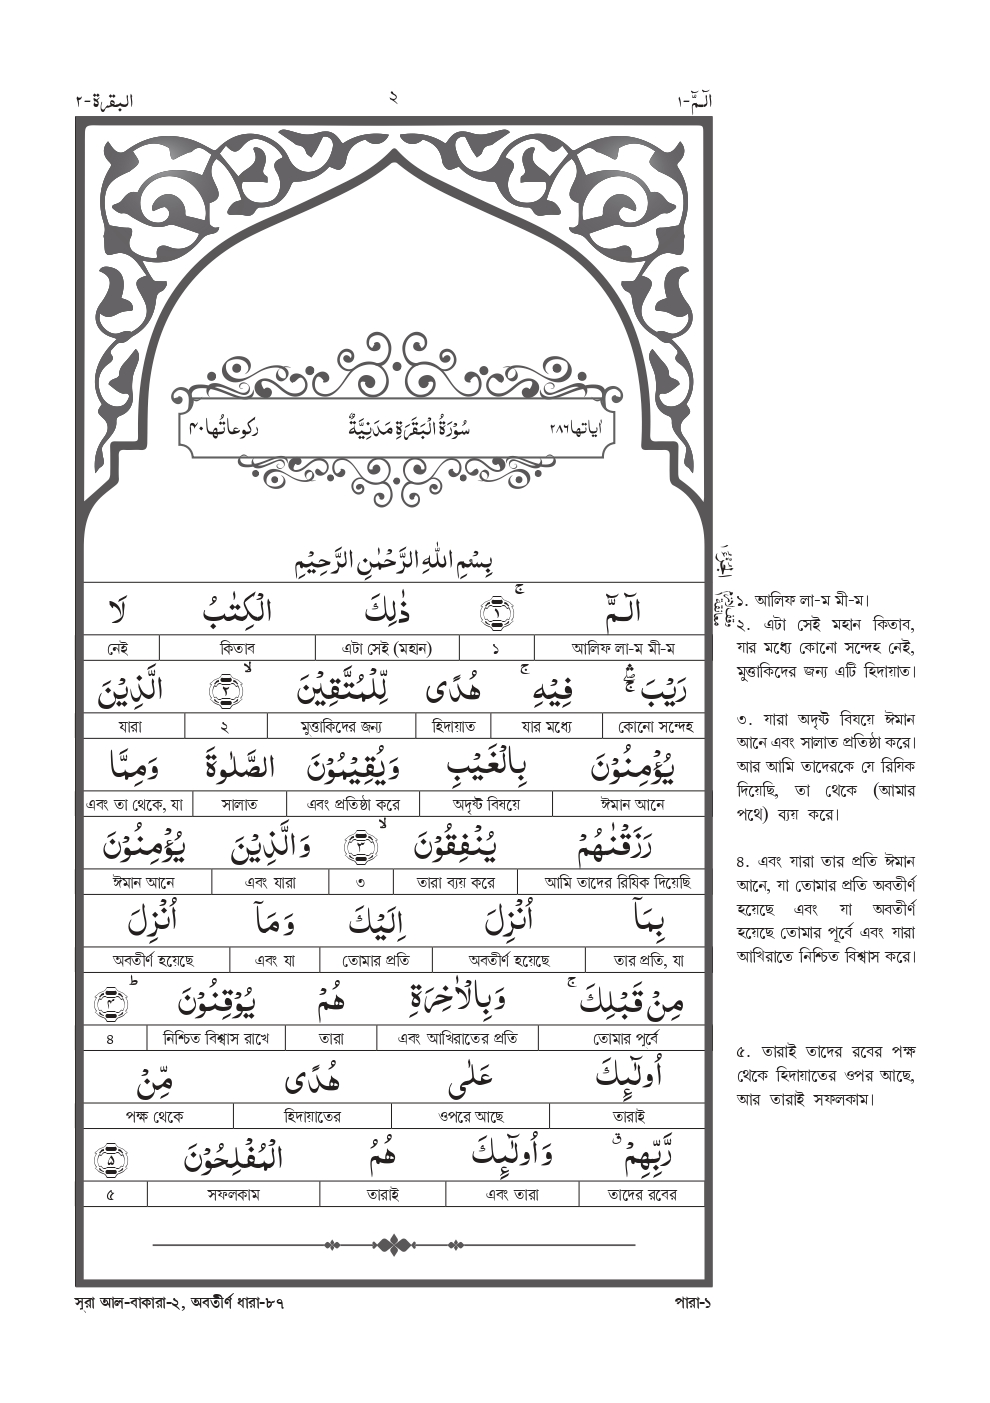 البقرة-٢
২
الٓمّٓ-١
رکوعاتُها۴۰
سُوْرَةُ الْبَقَرَةِ مَدَنِيَّةٌ
اٰیاتها۲۸۶
بِسْمِ اللهِ الرَّحْمٰنِ الرَّحِيْمِ
الٓـمّٓ ۚ ﴿۱﴾ ذٰلِكَ الْكِتٰبُ لَا
আলিফ লা-ম মী-ম ১ এটা সেই (মহান) কিতাব নেই
رَيْبَ ۛۚ فِيْهِ ۚ هُدًى لِّلْمُتَّقِيْنَ ۙ ﴿۲﴾ الَّذِيْنَ
কোনো সন্দেহ যার মধ্যে হিদায়াত মুত্তাকিদের জন্য ২ যারা
يُؤْمِنُوْنَ بِالْغَيْبِ وَيُقِيْمُوْنَ الصَّلٰوةَ وَمِمَّا
ঈমান আনে অদৃষ্ট বিষয়ে এবং প্রতিষ্ঠা করে সালাত এবং তা থেকে, যা
رَزَقْنٰهُمْ يُنْفِقُوْنَ ۙ ﴿۳﴾ وَالَّذِيْنَ يُؤْمِنُوْنَ
আমি তাদের রিযিক দিয়েছি তারা ব্যয় করে ৩ এবং যারা ঈমান আনে
بِمَآ اُنْزِلَ اِلَيْكَ وَمَآ اُنْزِلَ
তার প্রতি, যা অবতীর্ণ হয়েছে তোমার প্রতি এবং যা অবতীর্ণ হয়েছে
مِنْ قَبْلِكَ ۚ وَبِالْاٰخِرَةِ هُمْ يُوْقِنُوْنَ ؕ ﴿۴﴾
তোমার পূর্বে এবং আখিরাতের প্রতি তারা নিশ্চিত বিশ্বাস রাখে ৪
اُولٰٓئِكَ عَلٰى هُدًى مِّنْ
তারাই ওপরে আছে হিদায়াতের পক্ষ থেকে
رَّبِّهِمْ ۗ وَاُولٰٓئِكَ هُمُ الْمُفْلِحُوْنَ ﴿۵﴾
তাদের রবের এবং তারা তারাই সফলকাম ৫
الجزء ١
১. আলিফ লা-ম মী-ম।
২. এটা সেই মহান কিতাব,
যার মধ্যে কোনো সন্দেহ নেই,
মুত্তাকিদের জন্য এটি হিদায়াত।
৩. যারা অদৃষ্ট বিষয়ে ঈমান
আনে এবং সালাত প্রতিষ্ঠা করে।
আর আমি তাদেরকে যে রিযিক
দিয়েছি, তা থেকে (আমার
পথে) ব্যয় করে।
৪. এবং যারা তার প্রতি ঈমান
আনে, যা তোমার প্রতি অবতীর্ণ
হয়েছে এবং যা অবতীর্ণ
হয়েছে তোমার পূর্বে এবং যারা
আখিরাতে নিশ্চিত বিশ্বাস করে।
৫. তারাই তাদের রবের পক্ষ
থেকে হিদায়াতের ওপর আছে,
আর তারাই সফলকাম।
সূরা আল-বাকারা-২, অবতীর্ণ ধারা-৮৭
পারা-১